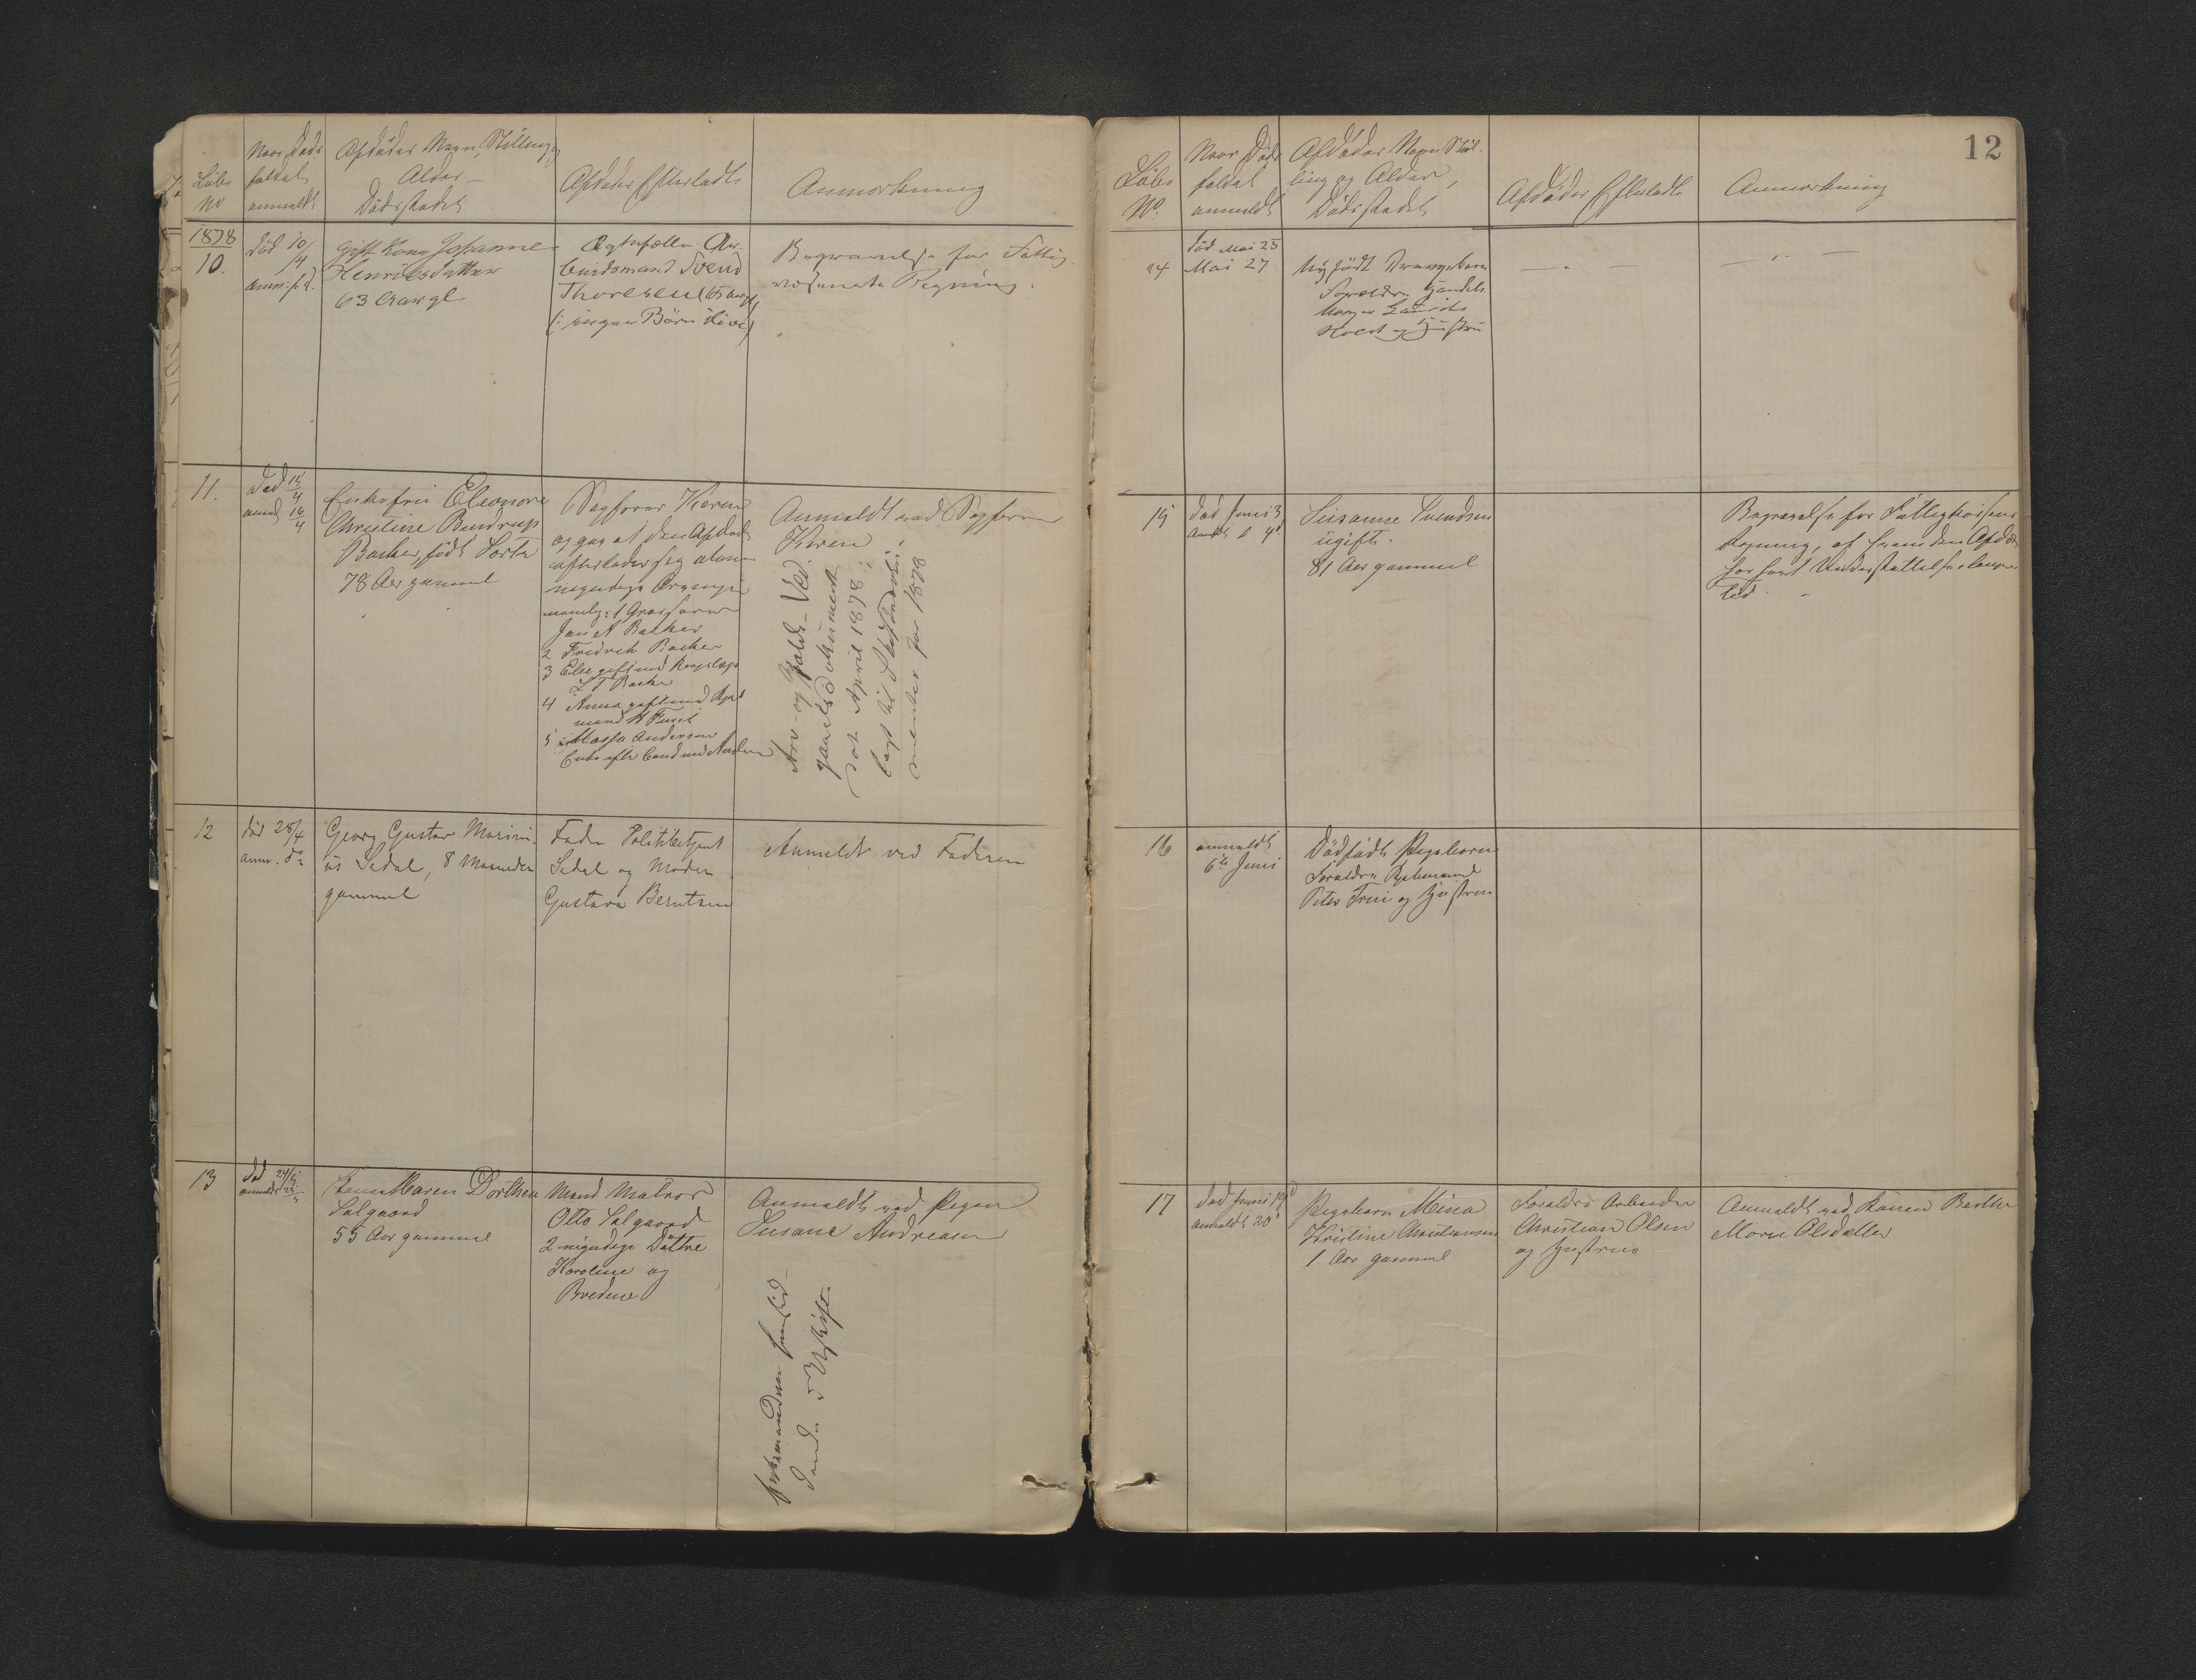 Løbe
No
Naar Døds
faldet
anmeldt
Afdødes Navn, Stilling og
Alder
Dødsstedet
Afdødes Efterladte
Anmærkning
1878
10.
død 10/4
anm. s. d.
Gift Kone Johanne
Henriksdatter
63 Aar gl.
Ægtefælle Ar-
beidsmand Svend
Thoresen (65 Aar gl.
(: ingen Børn ilive)
Begravelse for Fattig-
væsenets Regning.
11.
død 15/4
anm 16/4
Enkefru Eleonore
Christine Bendrup
Backer, født Sorte
78 Aar gammel
Sagfører Kieren
og gav at den Afdøde
efterlader sig alene
myndige Arvinger
nemlig: 1 Grosserer
Jan A Backer
2 Fredrik Backer
3 Elise gift med Korpslæge
L T Backer
4 Anna gift med Kjøb
mand
5 Andersen
Enke efter Cand med Andersen
Anmeldt ved Sagfører
Kieren
Arv- og Gjælds-Ved-
gaaelsesdokument
dat April 1878
lagt til Skiftedoku-
menter for 1878
12
død 28/4
anm. do
Georg Gustav Marini-
us Sedal, 8 Maaneder
gammel
Fader Politibetjent
Sedal og Moder
Gustava Berntsen
Anmeldt ved Faderen
13
død 24/5
anmeldt 25/5
Maren Dorthea
Salgaard
55 Aar gammel
Mand Matros
Otto Salgaard
2 myndige Døttre
Karoline og
Bredine
Anmeldt ved Pigen
Susane Andreasen
Enkemanden hensid-
dende i Uskifte
12
Løbe
No.
Naar Døds
faldet
anmeldt
Afdødes Navn Stil-
ling og Alder,
Dødsstedet
Afdødes Efterladte
Anmærkning
14
død Mai 25
Mai 27
Nyfødt Drengebarn
Forældre Handels-
mand Laurits
Holst og Hustru
— " —
— " —
15
død Juni 3
anmeldt d 4de
Susanne Svendsen
ugift.
81 Aar gammel
Begravelse for Fattigkassens
Regning, af hvem den Afdøde
har havt Understøttelse i længere
Tid.
16
anmeldt
6te Juni
Dødfødt Pigebarn
Forældre Kjøbmand
Peter Friis og Hustru
17
død Juni 19d
anmeldt 20d
Pigebarn Mina
Kristine Christiansen
1 Aar gammel
Forældre Arbeider
Christian Olsen
og Hustru
Anmeldt ved Konen Berthe
Marie Olsdatter